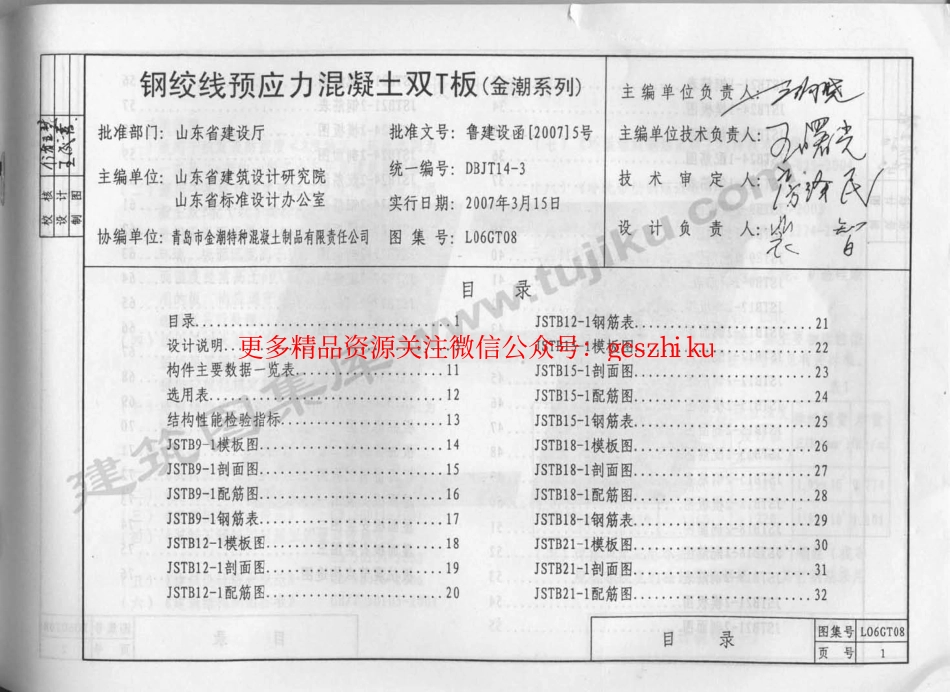 钢绞线预应力混凝土双T板(金潮系列)
批准部门: 山东省建设厅
批准文号: 鲁建设函[2007]5号
主编单位: 山东省建筑设计研究院
山东省标准设计办公室
统一编号: DBJT14-3
实行日期: 2007年3月15日
协编单位: 青岛市金潮特种混凝土制品有限责任公司
图集号: L06GT08
主编单位负责人:
主编单位技术负责人:
技术审定人:
设计负责人:
校核
设计
制图
目 录
目录
设计说明
构件主要数据一览表 11
选用表 12
结构性能检验指标 13
JSTB9-1模板图 14
JSTB9-1剖面图 15
JSTB9-1配筋图 16
JSTB9-1钢筋表 17
JSTB12-1模板图 18
JSTB12-1剖面图 19
JSTB12-1配筋图 20
JSTB12-1钢筋表 21
JSTB15-1模板图 22
JSTB15-1剖面图 23
JSTB15-1配筋图 24
JSTB15-1钢筋表 25
JSTB18-1模板图 26
JSTB18-1剖面图 27
JSTB18-1配筋图 28
JSTB18-1钢筋表 29
JSTB21-1模板图 30
JSTB21-1剖面图 31
JSTB21-1配筋图 32
更多精品资源关注微信公众号: gcszhi ku
建筑图集库 www.tujiku.com
目 录
图集号 L06GT08
页 号 1